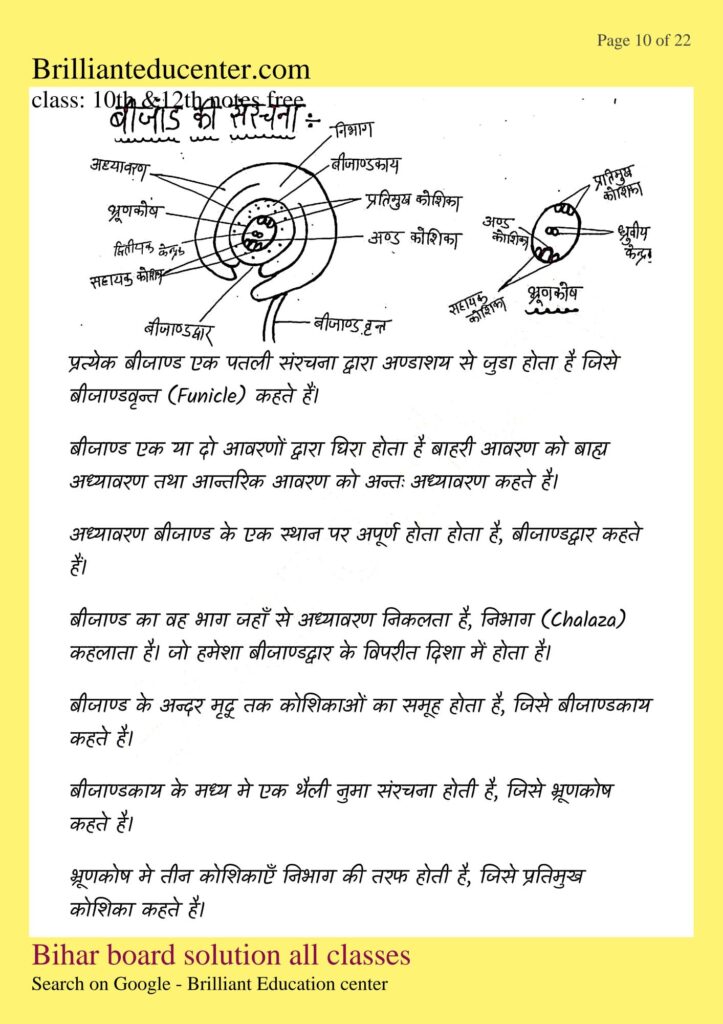 Page 10 of 22
Brillianteducenter.com
class: 10th &12th notes free
बीजांड की संरचना ÷
निभाग
अध्यावरण
बीजाण्डकाय
प्रतिमुख कोशिका
भ्रूणकोष
अण्ड कोशिका
द्वितीयक केन्द्रक
सहायक कोशिका
बीजाण्डद्वार
बीजाण्ड वृन्त
प्रतिमुख
कोशिका
अण्ड
कोशिका
ध्रुवीय
केन्द्रक
सहायक
कोशिका
भ्रूणकोष
प्रत्येक बीजाण्ड एक पतली संरचना द्वारा अण्डाशय से जुडा होता है जिसे
बीजाण्डवृन्त (Funicle) कहते हैं।
बीजाण्ड एक या दो आवरणों द्वारा घिरा होता है बाहरी आवरण को बाह्य
अध्यावरण तथा आन्तरिक आवरण को अन्तः अध्यावरण कहते है।
अध्यावरण बीजाण्ड के एक स्थान पर अपूर्ण होता होता है, बीजाण्डद्वार कहते
हैं।
बीजाण्ड का वह भाग जहाँ से अध्यावरण निकलता है, निभाग (Chalaza)
कहलाता है। जो हमेशा बीजाण्डद्वार के विपरीत दिशा में होता है।
बीजाण्ड के अन्दर मृदू तक कोशिकाओं का समूह होता है, जिसे बीजाण्डकाय
कहते है।
बीजाण्डकाय के मध्य मे एक थैली नुमा संरचना होती है, जिसे भ्रूणकोष
कहते है।
भ्रूणकोष मे तीन कोशिकाएँ निभाग की तरफ होती है, जिसे प्रतिमुख
कोशिका कहते है।
Bihar board solution all classes
Search on Google - Brilliant Education center